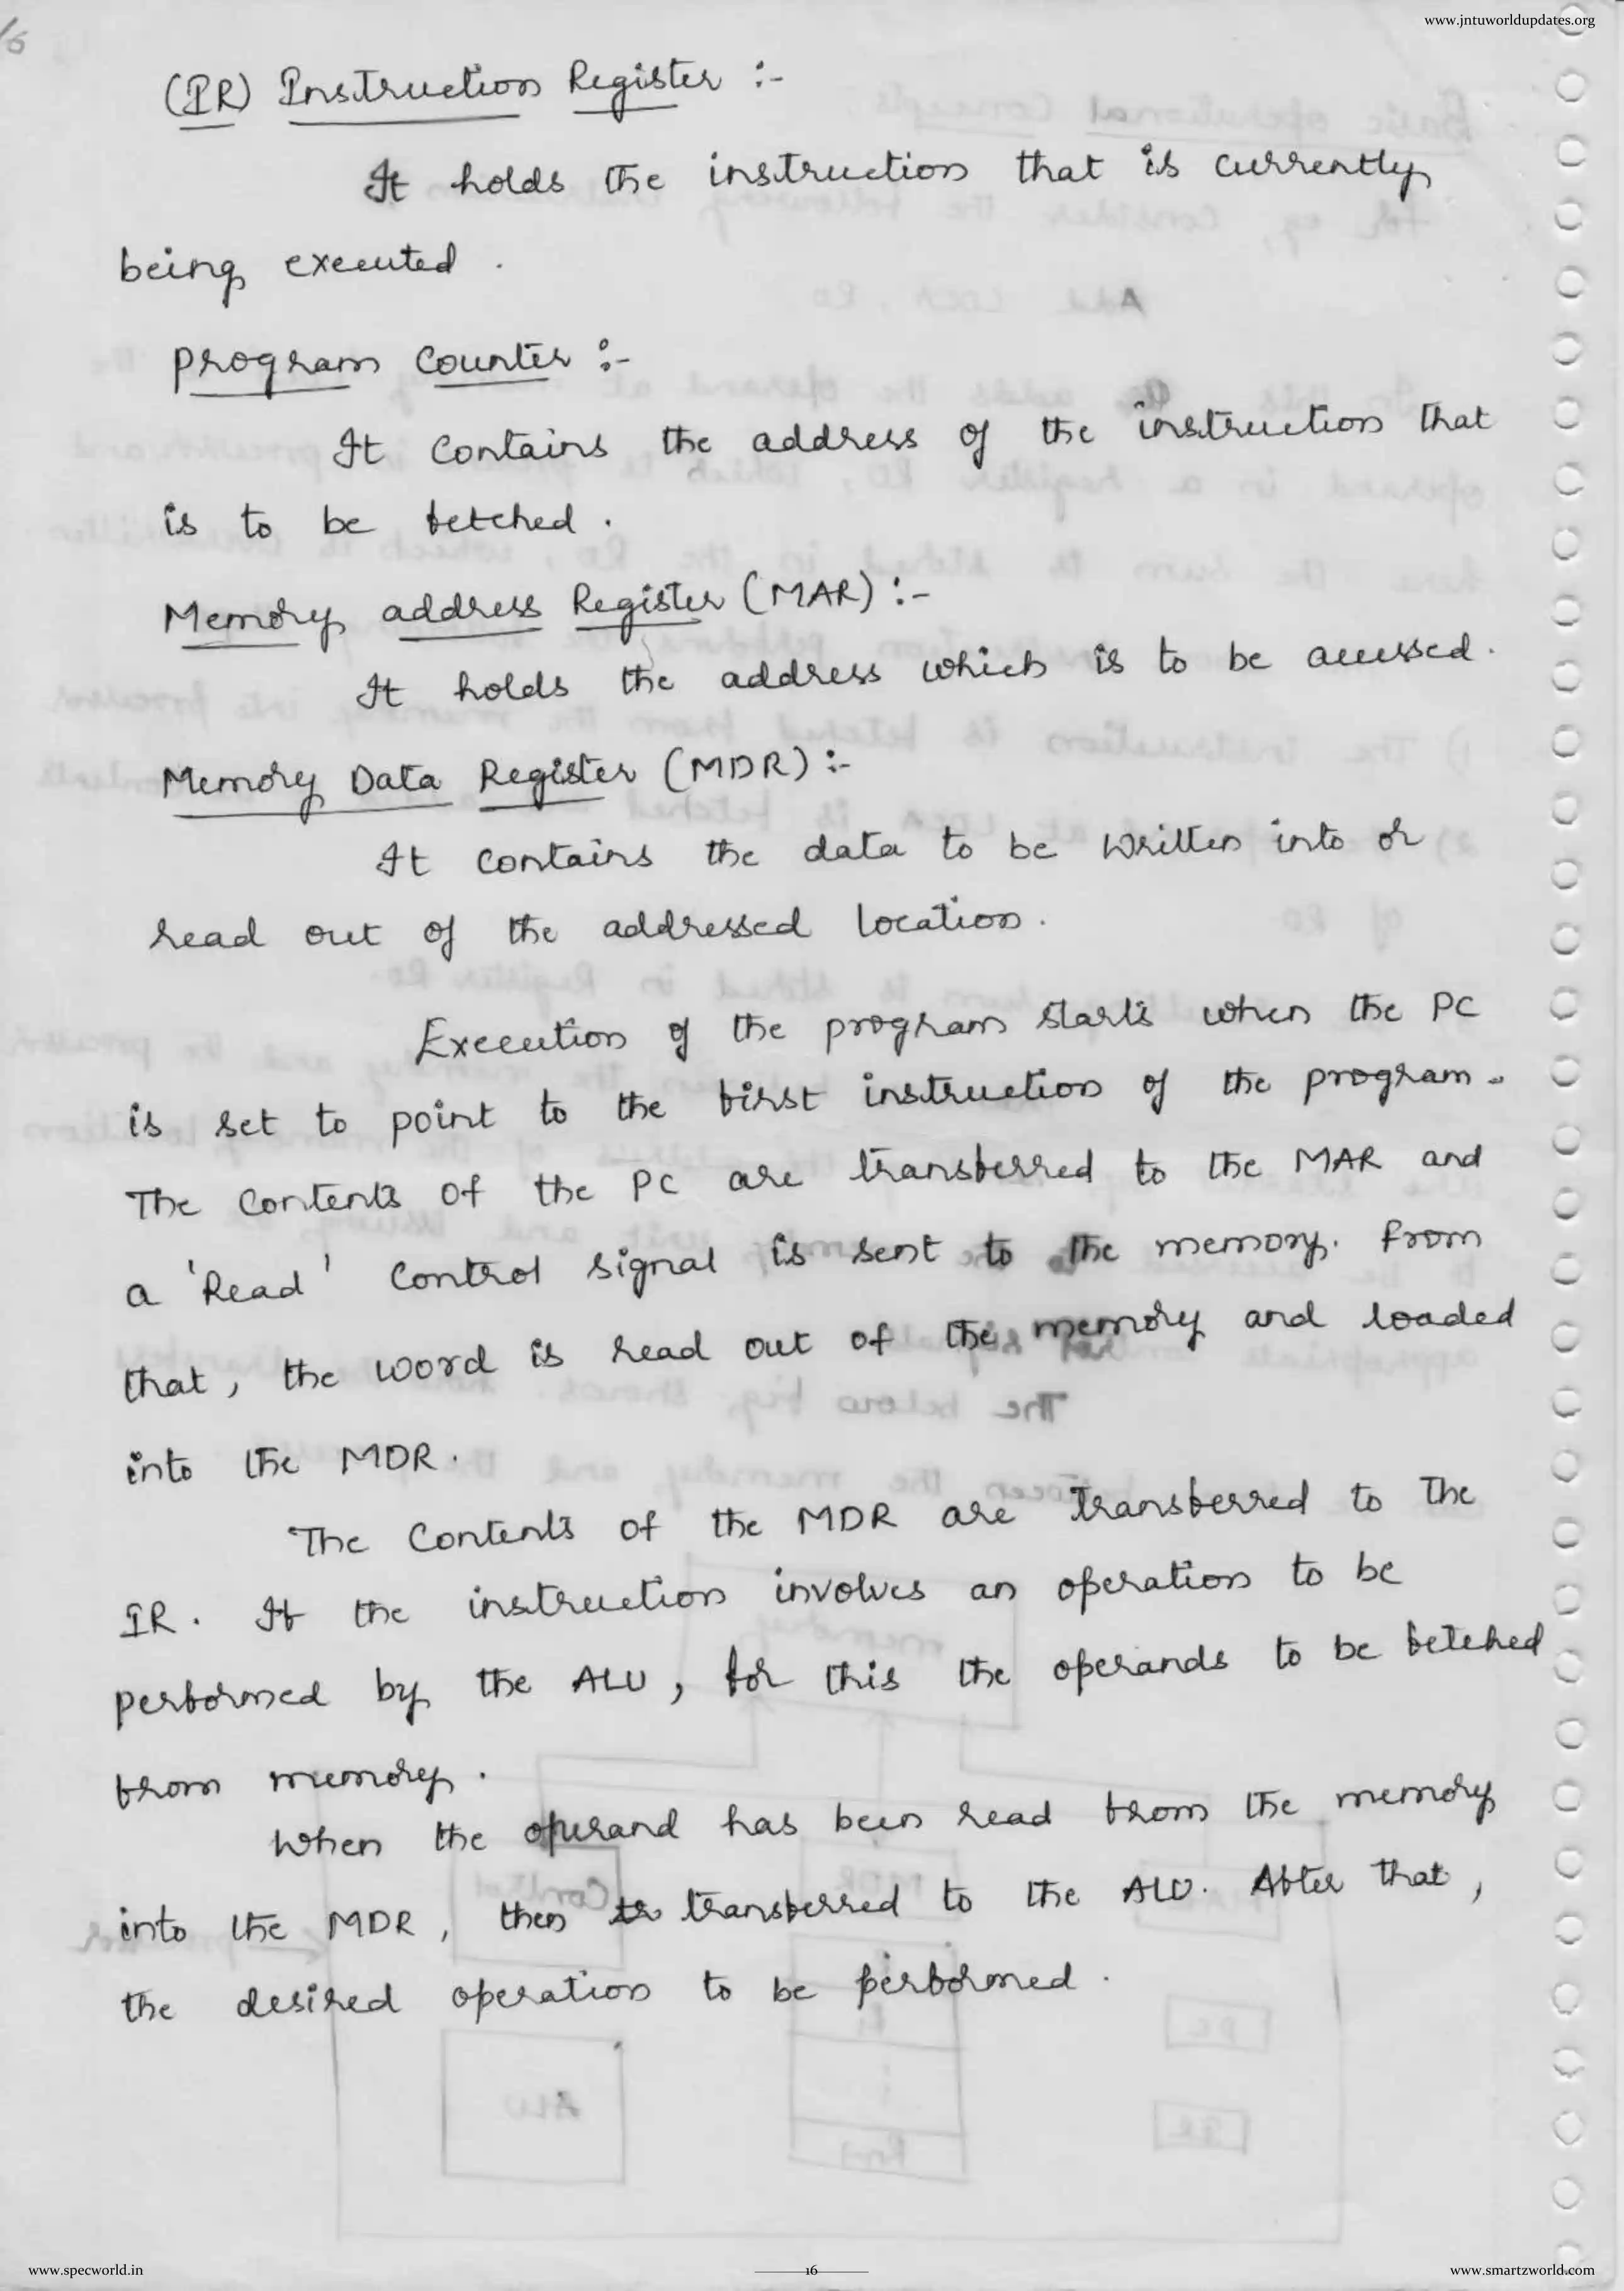 www.jntuworldupdates.org
(IR) Instruction Register :-
It holds the instruction that is currently
being executed .
Program Counter :-
It contains the address of the instruction that
is to be fetched .
Memory address Register (MAR) :-
It holds the address which is to be accessed .
Memory Data Register (MDR) :-
It contains the data to be written into or
read out of the addressed location .
Execution of the program starts when the PC
is set to point to the first instruction of the program .
The contents of the PC are transferred to the MAR and
a 'Read' control signal is sent to the memory. From
that , the word is read out of the memory and loaded
into the MDR .
The contents of the MDR are transferred to the
IR . If the instruction involves an operation to be
performed by the ALU , for this the operands to be fetched
from memory .
When the operand has been read from the memory
into the MDR , then transferred to the ALU . After that ,
the desired operation to be performed .
www.specworld.in
16
www.smartzworld.com